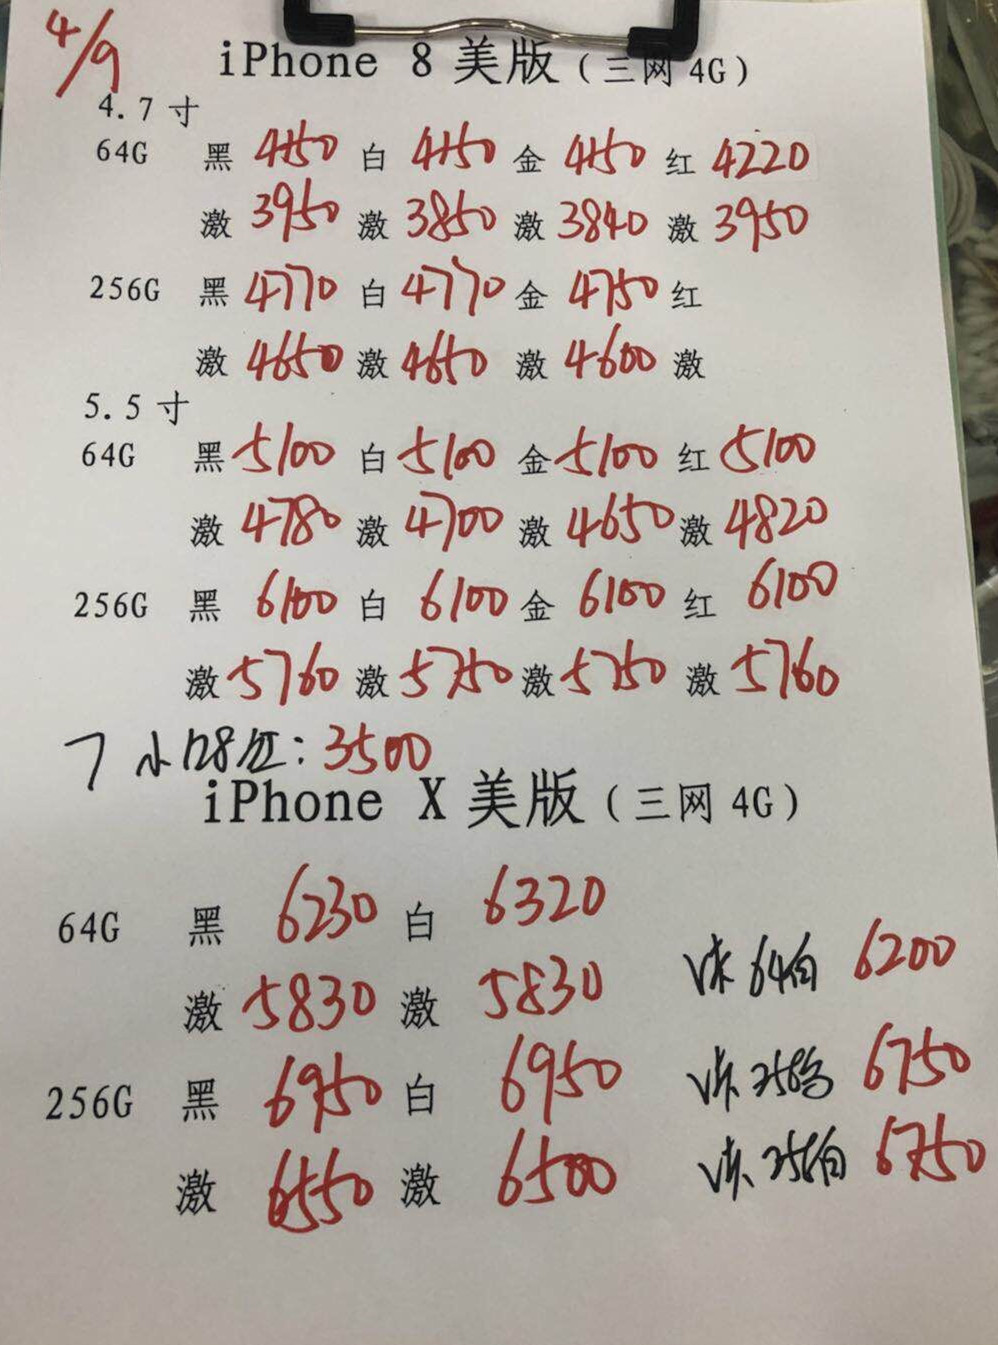 4/9
iPhone 8 美版(三网 4G)
4.7 寸
64G 黑 4150 白 4150 金 4150 红 4220
激 3950 激 3850 激 3840 激 3950
256G 黑 4770 白 4770 金 4750 红
激 4650 激 4650 激 4600 激
5.5 寸
64G 黑 5100 白 5100 金 5100 红 5100
激 4780 激 4700 激 4650 激 4820
256G 黑 6100 白 6100 金 6100 红 6100
激 5760 激 5750 激 5750 激 5760
7 小128红:3500
iPhone X 美版(三网 4G)
64G 黑 6230 白 6320
64白 6200
激 5830 激 5830
256G 黑 6950 白 6950
256 6750
激 6550 激 6500
256白 6750